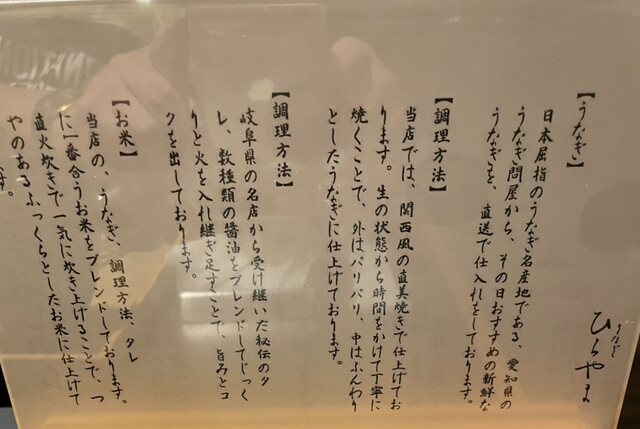 うなぎ
ひらやま
【うなぎ】
日本屈指のうなぎ名産地である、愛知県の
うなぎ問屋から、その日おすすめの新鮮な
うなぎを、直送で仕入れをしております。
【調理方法】
当店では、関西風の直美焼きで仕上げてお
ります。生の状態から時間をかけて丁寧に
焼くことで、外はパリパリ、中はふんわり
としたうなぎに仕上げております。
【調理方法】
岐阜県の名店から受け継いだ秘伝のタ
レ、数種類の醤油をブレンドしてじっく
りと火を入れ継ぎ足すことで、旨みとコ
クを出しております。
【お米】
当店の、うなぎ、調理方法、タレ
に一番合うお米をブレンドしております。
直火炊きで一気に炊き上げることで、つ
やのあるふっくらとしたお米に仕上げて
ます。